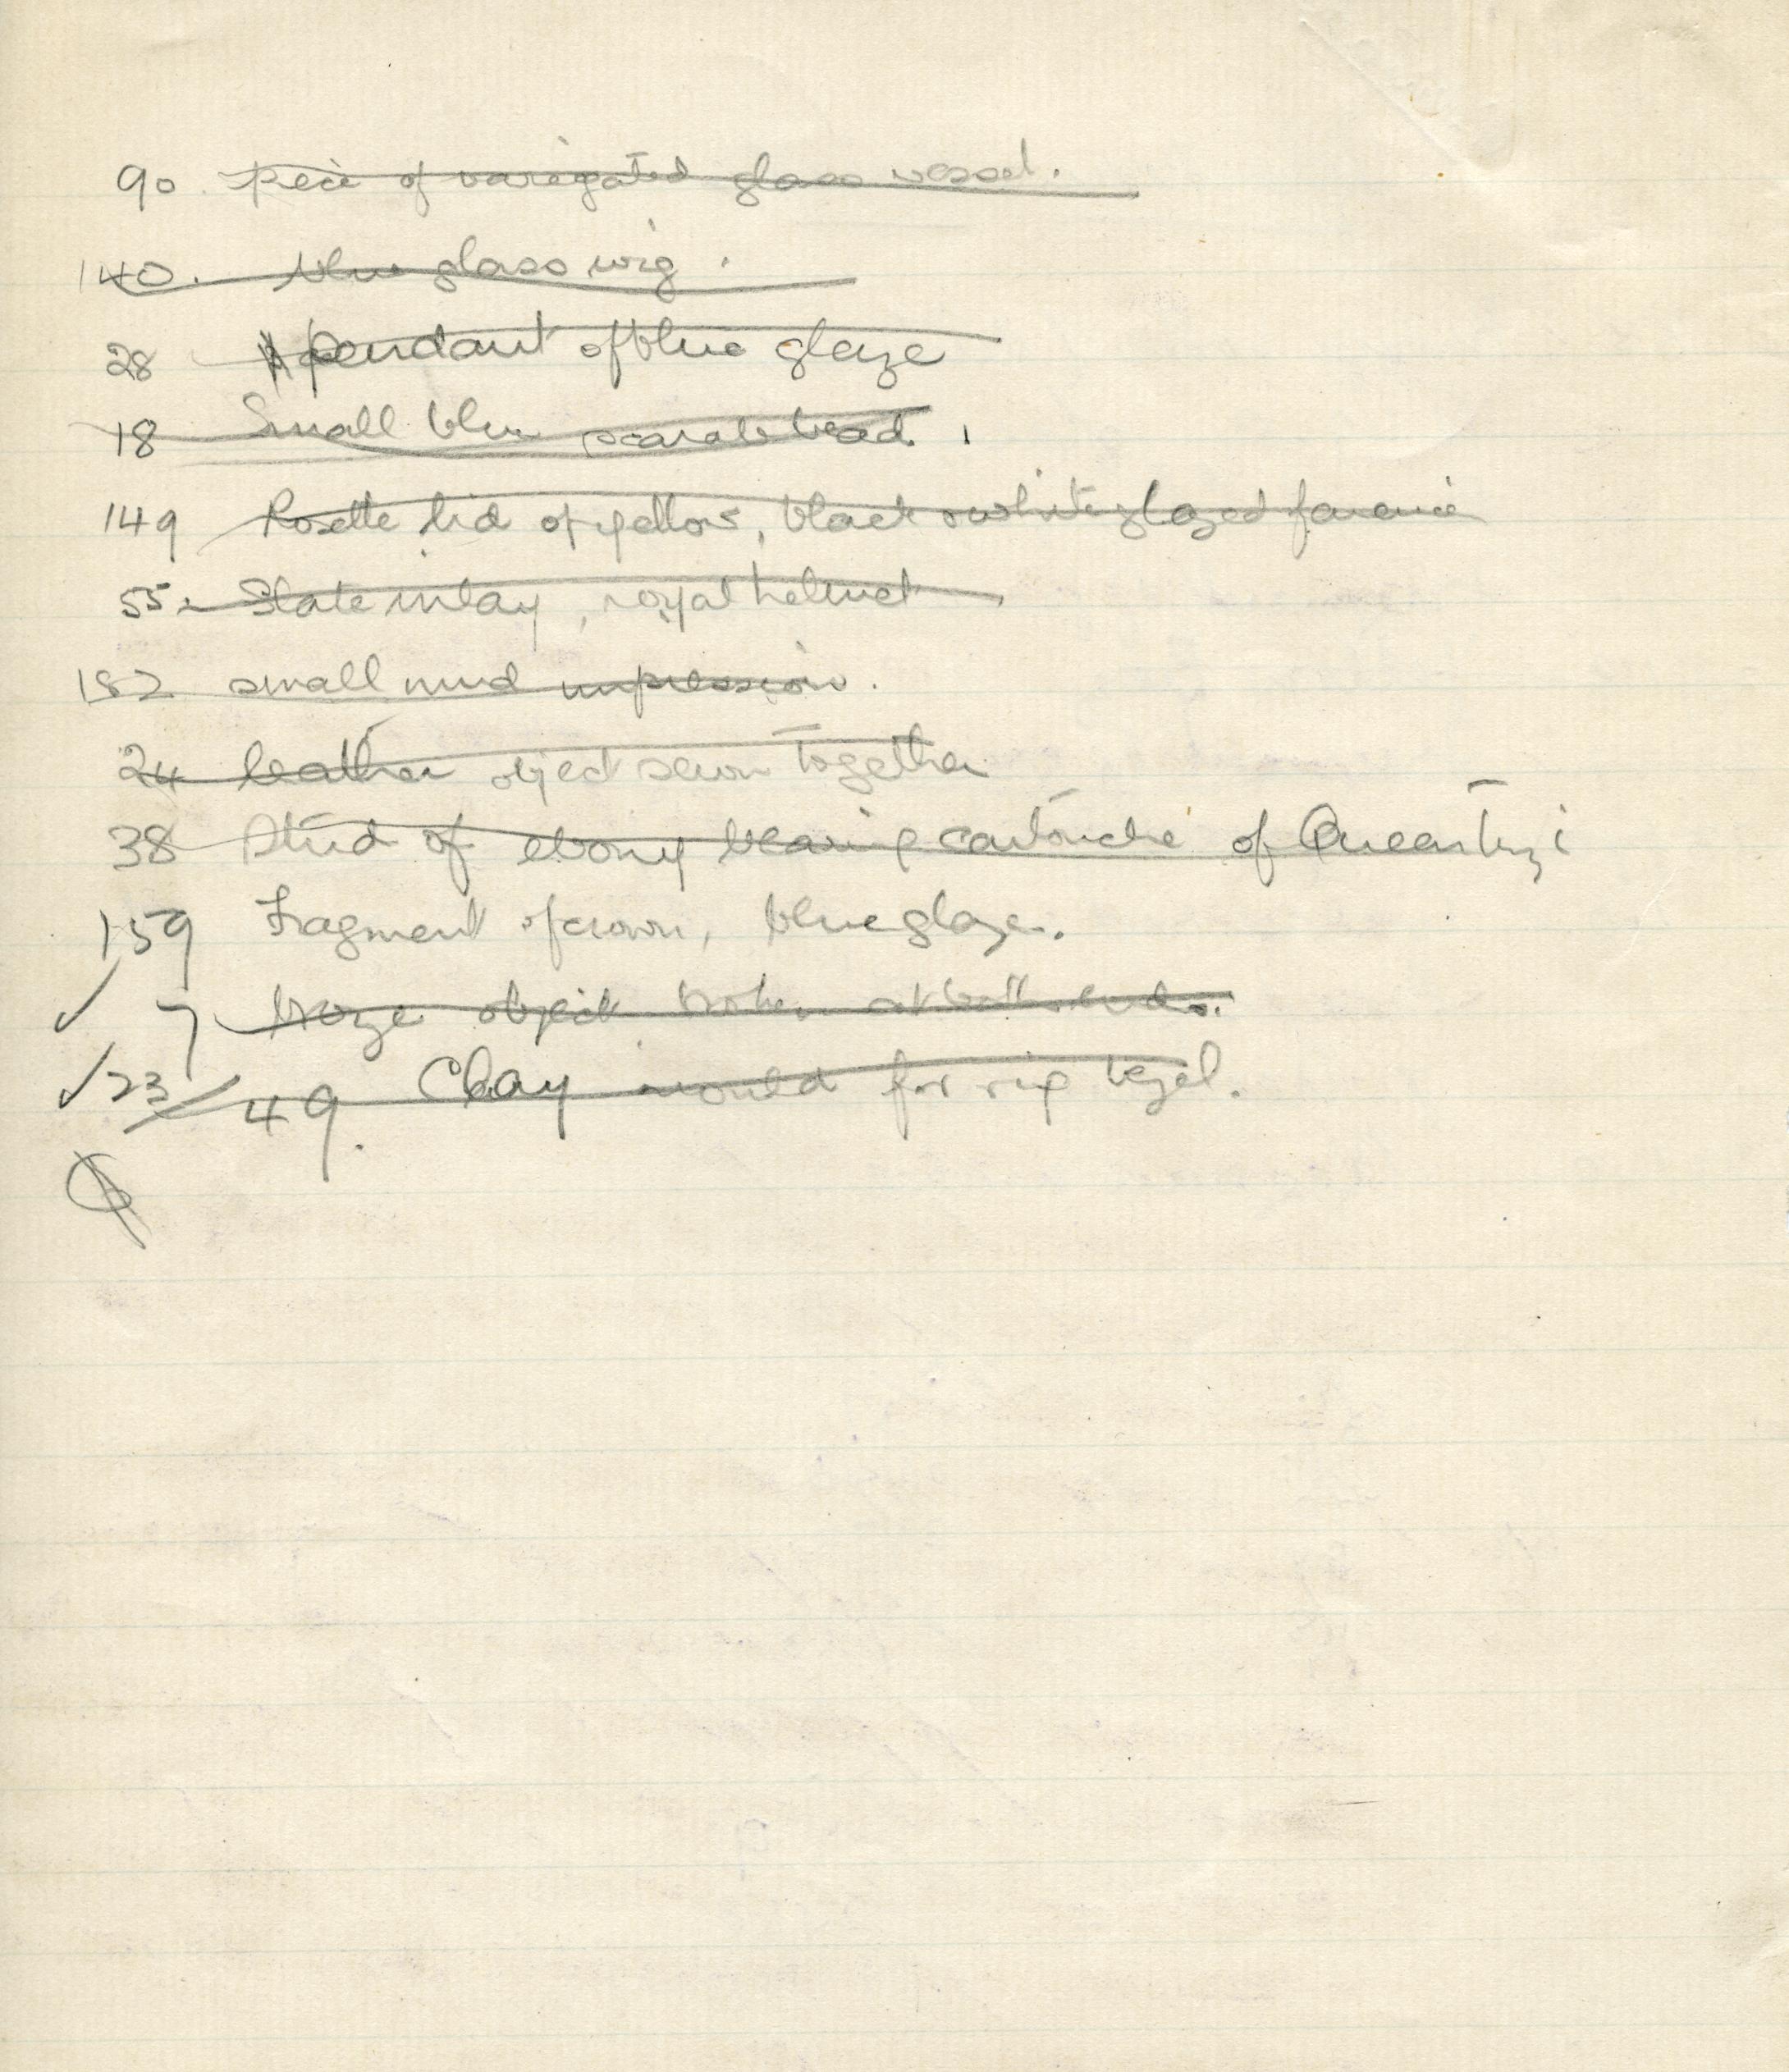 90. Piece of variegated glass vessel.
140. blue glass wig.
28 pendant of blue glaze
18 Small blue scarab bead.
149 Rosette lid of yellow, black & white glazed faience
55. Slate inlay, royal helmet
182 small mud impression.
24 leather object sewn together
38 Stud of ebony bearing cartouche of Queen Tyi
159 Fragment of crown, blue glaze.
✓ 7 broze object broken at both ends.
✓ 23/49. Clay mould for rig bezel.